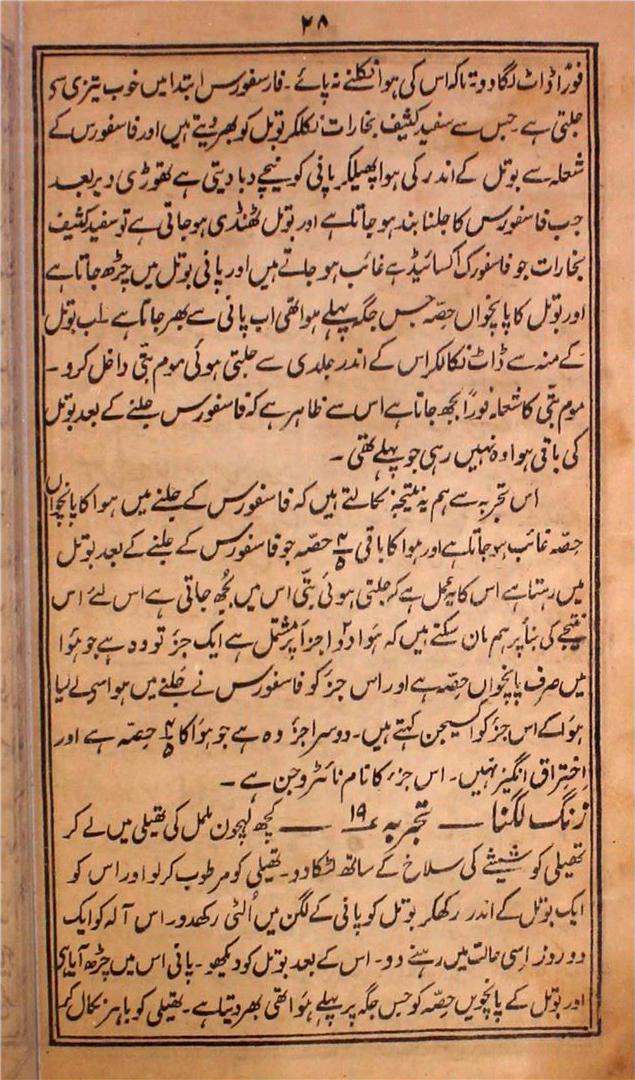 ۲۸
فوراً ڈاٹ لگا دو تاکہ اس کی ہوا نکلنے نہ پائے۔ فاسفورس ابتدا میں خوب تیزی سے
جلتی ہے جس سے سفید کثیف بخارات نکلکر بوتل کو بھر دیتے ہیں اور فاسفورس کے
شعلہ سے بوتل کے اندر کی ہوا پھیلکر پانی کو نیچے دبا دیتی ہے تھوڑی دیر بعد
جب فاسفورس کا جلنا بند ہو جاتا ہے اور بوتل ٹھنڈی ہو جاتی ہے تو سفید کثیف
بخارات جو فاسفورک آکسائیڈ ہے غائب ہو جاتے ہیں اور پانی بوتل میں چڑھ جاتا ہے
اور بوتل کا پانچواں حصّہ جس جگہ پہلے ہوا تھی اب پانی سے بھر جاتا ہے۔ اب بوتل
کے منہ سے ڈاٹ نکالکر اس کے اندر جلدی سے جلتی ہوئی موم بتّی داخل کرو۔
موم بتّی کا شعلہ فوراً بجھ جاتا ہے اس سے ظاہر ہے کہ فاسفورس جلنے کے بعد بوتل
کی باقی ہوا وہ نہیں رہی جو پہلے تھی۔
اس تجربہ سے ہم یہ نتیجہ نکالتے ہیں کہ فاسفورس کے جلنے میں ہوا کا پانچواں
حصّہ غائب ہو جاتا ہے اور ہوا کا باقی ۴/۵ حصّہ جو فاسفورس کے جلنے کے بعد بوتل
میں رہتا ہے اس کا یہ عمل ہے کہ جلتی ہوئی بتّی اس میں بُجھ جاتی ہے اس لئے اس
نتیجے کی بنا پر ہم مان سکتے ہیں کہ ہَوا دو اجزا پر مشتمل ہے ایک جزُ تو وہ ہے جو ہَوا
میں صرف پانچواں حصّہ ہے اور اس جزُ کو فاسفورس نے جَلنے میں ہوا سے لے لیا
ہَوا کے اس جزُ کو آکسیجن کہتے ہیں۔ دوسرا جزُ وہ ہے جو ہَوا کا ۴/۵ حِصّہ ہے اور
اِحتراق انگیز نہیں۔ اس جزء کا نام نائٹروجن ہے۔
زنگ لگنا — تجربہ ۱۹ — کچھ لہچون ململ کی تھیلی میں لے کر
تھیلی کو شیشے کی سلاخ کے ساتھ لٹکا دو۔ تھیلی کو مرطوب کر لو اور اس کو
ایک بوتل کے اندر رکھکر بوتل کو پانی کے لگن میں اُلٹی رکھدو۔ اور اس آلہ کو ایک
دو روز اِسی حالت میں رہنے دو۔ اس کے بعد بوتل کو دیکھو۔ پانی اس میں چڑھ آیا ہے
اور بوتل کے پانچویں حصّہ کو جس جگہ پر پہلے ہَوا تھی بھر دیتا ہے۔ تھیلی کو باہر نکال کر